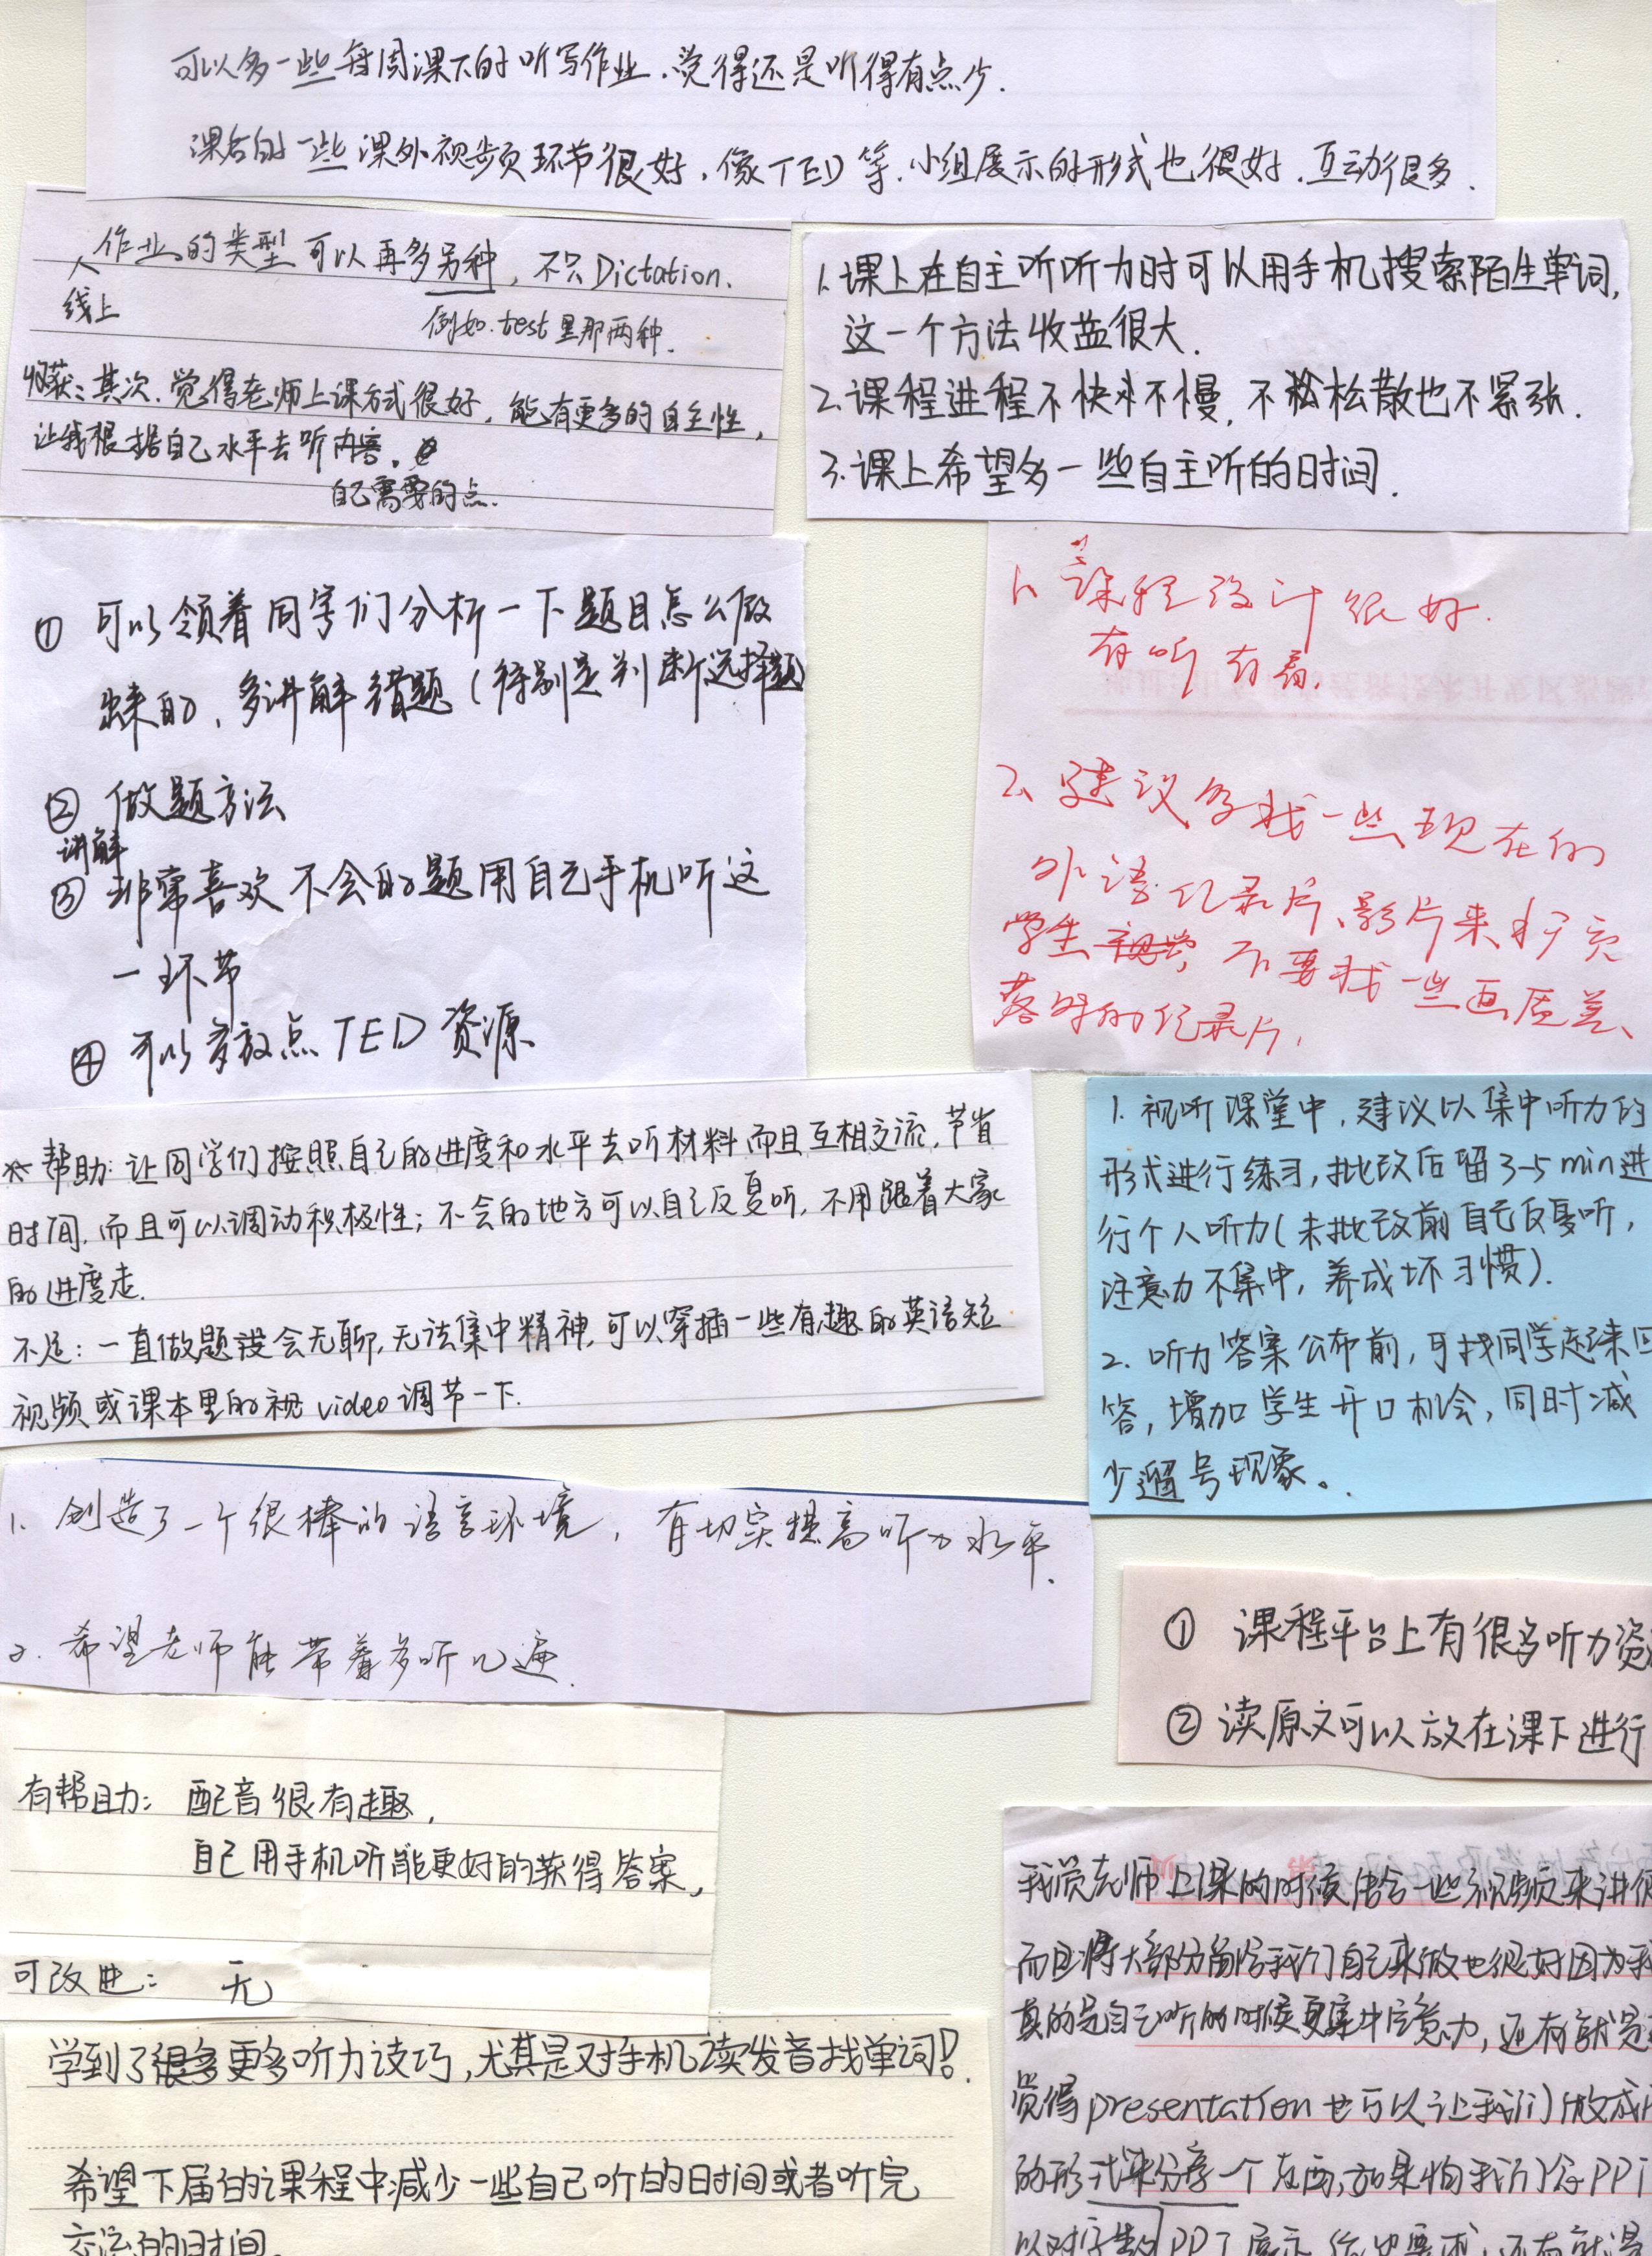 可以多一些每周课下的听写作业,觉得还是听得有点少.
课后的一些课外视频环节很好,像TED等.小组展示的形式也很好.互动很多.
作业的类型可以再多另种,不只Dictation.
线上
例如.test里那两种.
收获:其次.觉得老师上课方式很好,能有更多的自主性,
让我根据自己水平去听内容.
自己需要的点.
1.课上在自主听听力时可以用手机搜索陌生单词,
这一个方法收益很大.
2.课程进程不快不慢,不松散也不紧张.
3.课上希望多一些自主听的时间.
① 可以领着同学们分析一下题目怎么做
出来的,多讲解错题(特别是判断选择题)
② 做题方法
讲解
③ 非常喜欢不会的题用自己手机听这
一环节
④ 可以多放点TED资源
1、课程设计很好.
有听有看.
2、建议多找一些现在的
外语纪录片、影片来扩充
学生,不要找一些画质差、
落时的纪录片.
※帮助:让同学们按照自己的进度和水平去听材料而且互相交流,节省
时间,而且可以调动积极性;不会的地方可以自己反复听,不用跟着大家
的进度走.
不足:一直做题会无聊,无法集中精神,可以穿插一些有趣的英语短
视频或课本里的视video调节一下.
1. 视听课堂中,建议以集中听力的
形式进行练习,批改后留3-5min进
行个人听力(未批改前自己反复听,
注意力不集中,养成坏习惯).
2. 听力答案公布前,可找同学起来回
答,增加学生开口机会,同时减
少遛号现象。
1. 创造了一个很棒的语言环境,有切实提高听力水平.
2. 希望老师能带着多听几遍.
① 课程平台上有很多听力资
② 读原文可以放在课下进行
有帮助: 配音很有趣,
自己用手机听能更好的获得答案,
可改进: 无
学到了很多更多听力技巧,尤其是对手机读发音找单词!
希望下届的课程中减少一些自己听的时间或者听完
交流的时间.
我觉老师上课的时候结合一些视频来讲
而且将大部分留给我们自己来做也很好因为我
真的是自己听的时候更集中注意力,还有就是
觉得presentation也可以让我们做成
的形式来分享一个东西,如果怕我们念PPT
以对 PPT展示 要求,还有就是